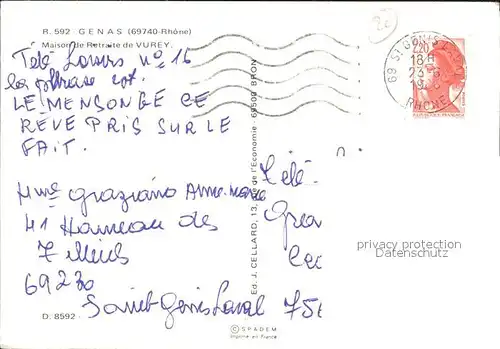 R. 592 GENAS (69740-Rhône)
Maison de Retraite de VUREY.
Télé Loisirs n° 16
la phrase est.
LE MENSONGE CE
RÊVE PRIS SUR LE
FAIT.
Mme Graziano Anne-Marie
41 Hameau des
69230
Saint Genis Laval
D. 8592
Ed. J. CELLARD, 13, de l'Economie 69500 BRON
© SPADEM
Imprimé en France
Télé
75
69 ST GENIS LAVAL
18H
23-
19
RHONE
2,20
privacy protection
Datenschutz